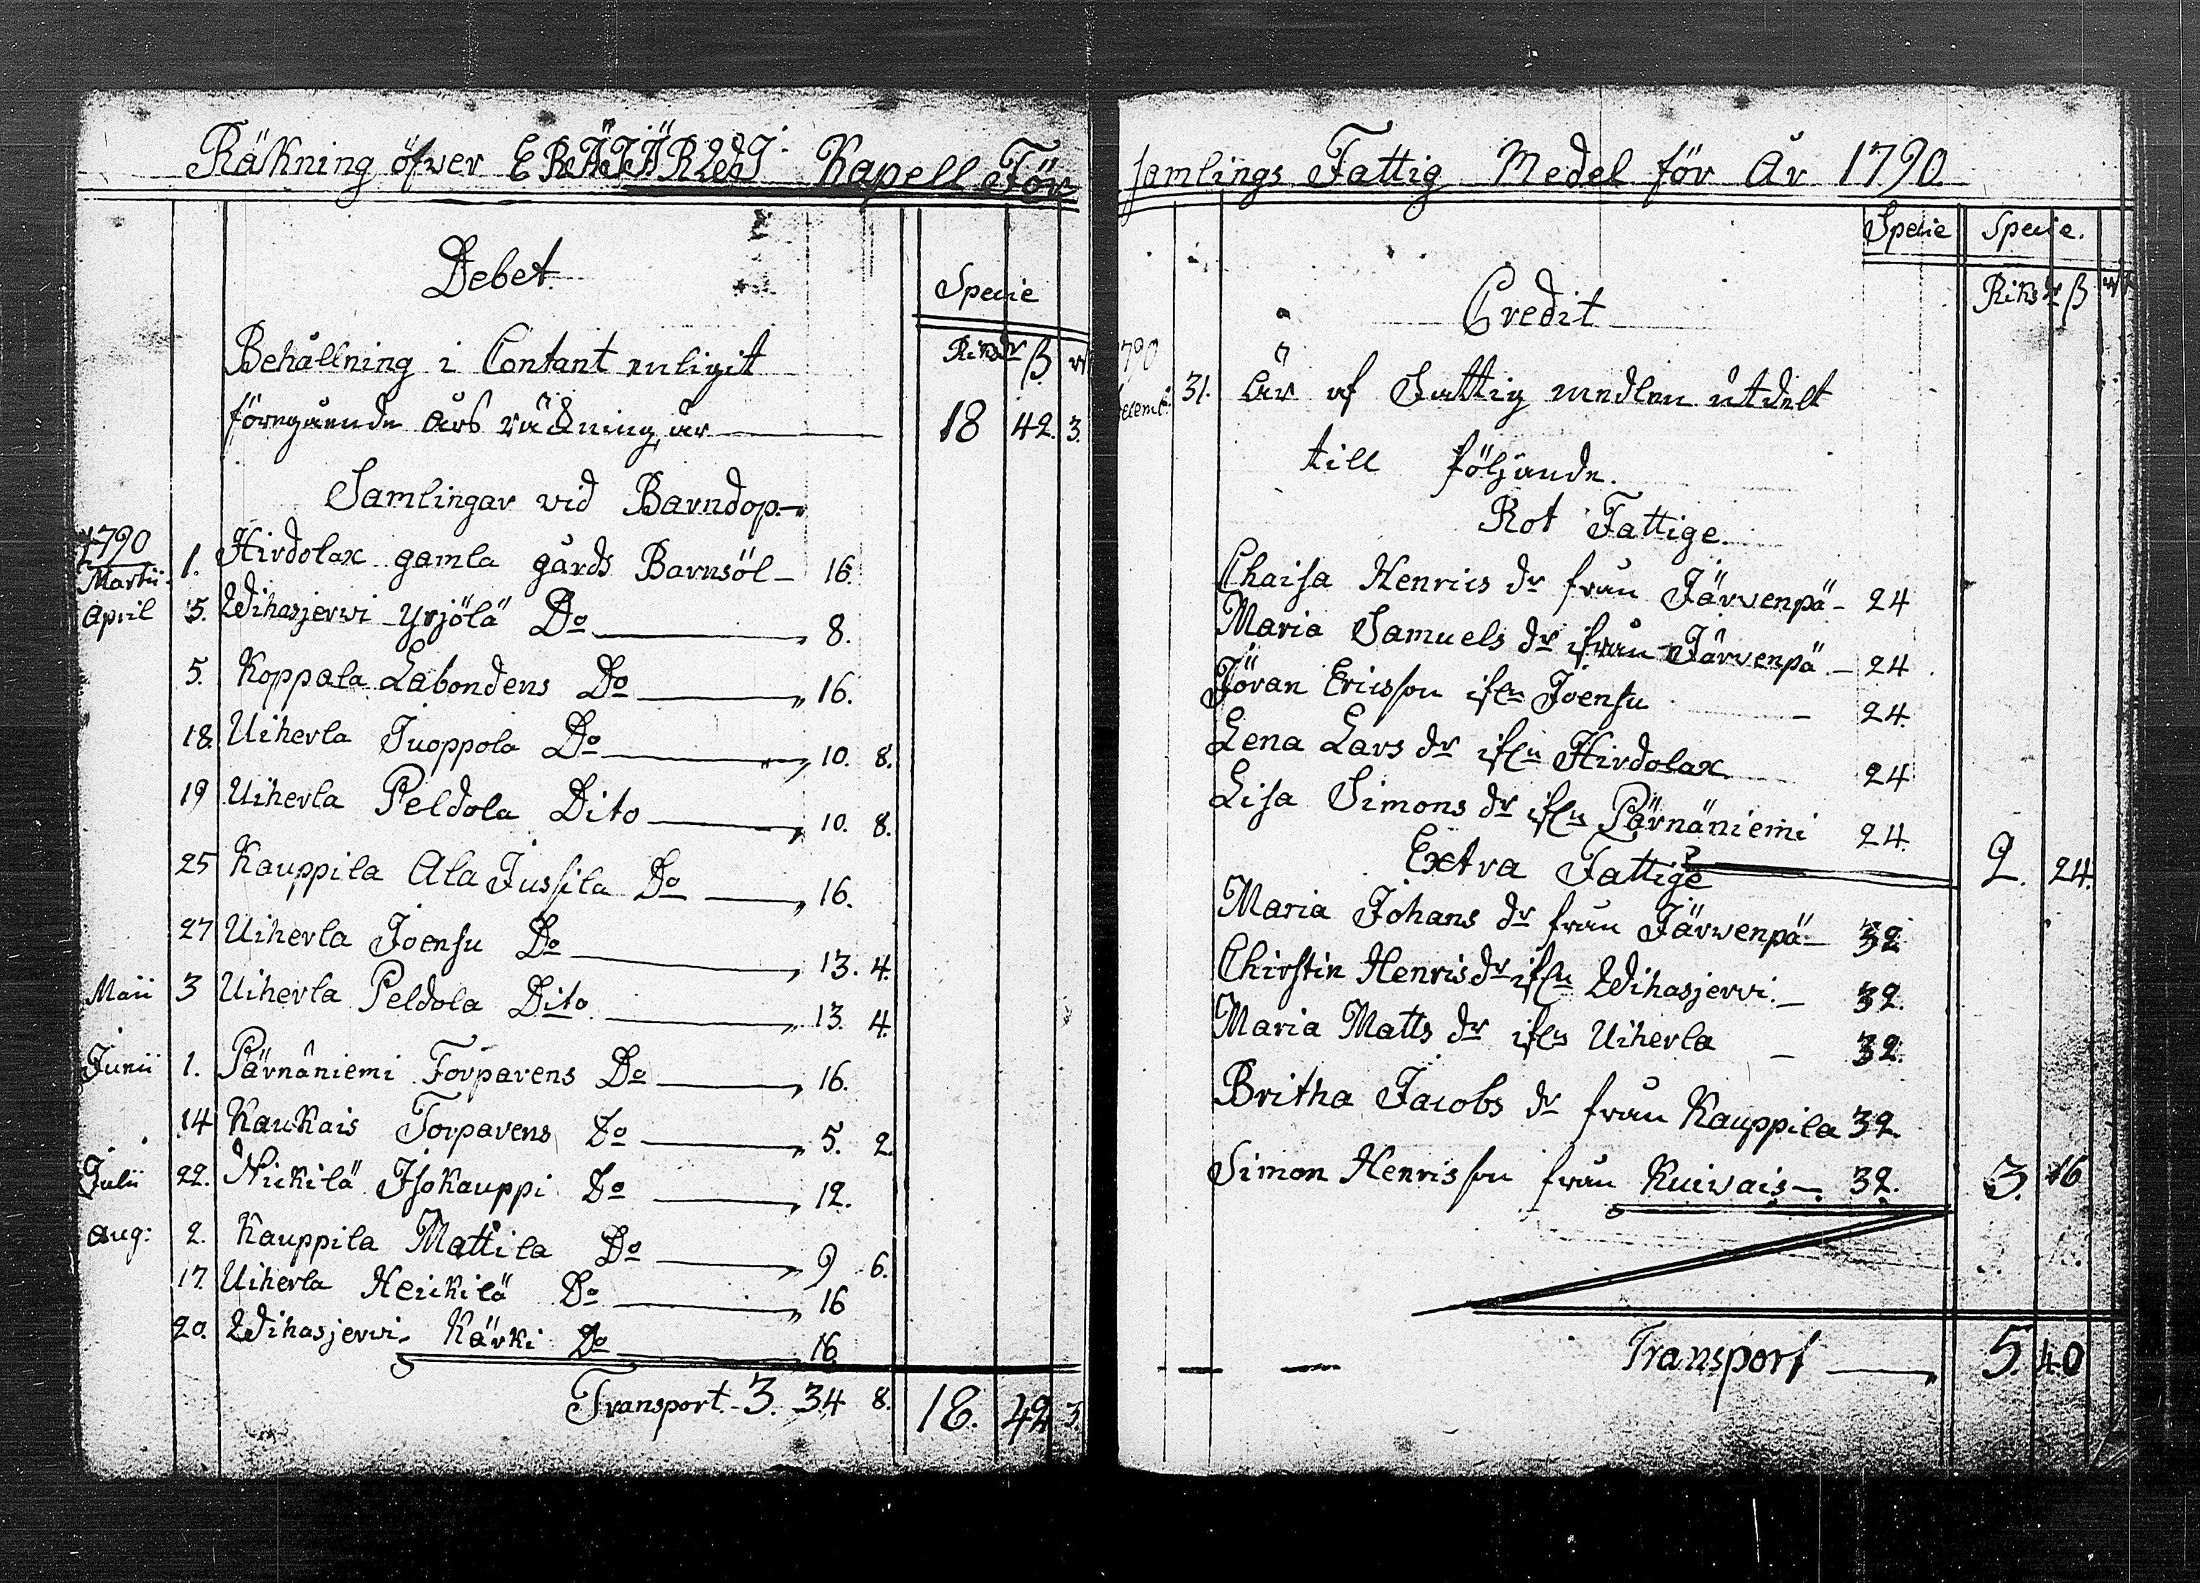 Räkning öfwer ERÄJÄRWI Kapell För
Debet.
Specie
Riksdr ß rst
Behållning i Contant enligit
föregående års räkning, är 18 42. 3.
Samlingar vid Barndop.
1790
Martii. 1. Hirdolax gamla gårds Barnsöl 16.
April 5. Wihasjerwi Yrjölä Do 8.
5. Koppala Labondens Do 16.
18. Uiherla Juoppola Do 10. 8.
19 Uiherla Peldola Dito 10. 8.
25 Kauppila Ala Jussila Do 16.
27 Uiherla Joensu Do 13. 4.
Maii 3 Uiherla Peldola Dito 13. 4.
Junii 1. Pärnäniemi Torparens Do 16.
14 Kaukais Torparens Do 5. 2.
Julii 22. Nickilä Isokauppi Do 12.
Aug: 2. Kauppila Mattila Do 9 6.
17. Uiherla Heickilä Do 16
20. Wihasjerwi Kärki Do 16
Transport 3. 34 8. 18. 42 3.
samlings Fattig Medel för År 1790.
Specie Specie.
Riksdr ß rst
Credit
1790
Decemb: 31. är af Fattig medlen utdelt
till följande.
Rot Fattige.
Chaisa Henrics dr från Järvenpä 24
Maria Samuels dr ifrån Järvenpä 24
Jöran Ericsson ifrn Joensu 24.
Lena Lars dr ifrn Hirdolax 24
Lisa Simons dr ifrn Pärnäniemi 24. 2. 24.
Extra Fattige
Maria Johans dr från Järwenpä 32
Chirstin Henris dr ifrn Wihasjerwi. 32.
Maria Matts dr ifrn Uiherla 32.
Britha Jacobs dr från Kauppila 32.
Simon Henrisson från Kuiwais 32. 3. 16
Transport 5. 40